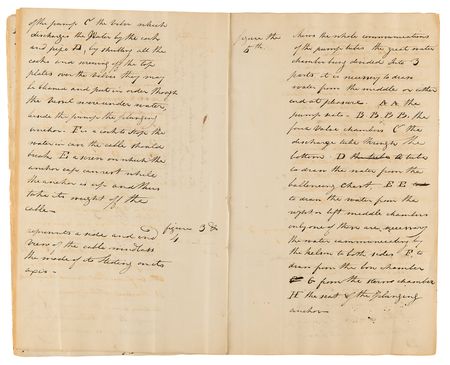 of the pump C the tube which
discharges the Water by the cock
and pipe D, by shutting all the
cocks and screwing off the top
plates over the valves they may
be cleaned and put in order though
the Vessel were under water,
aside the pump the plunging
anchor. F is a cock to stop the
water in case the cable should
break E is a screw on which the
anchor cap can rest while
the anchor is up and thus
take its weight off the
cable
figure 3 &
4
represents a side and end
view of the cable windlass
the mode of its sliding on its
axis
figure the
5th
shows the whole communications
of the pump tubes the great water
chamber being divided into 3
parts it is necessary to draw
water from the middle or either
end at pleasure. A A the
pump B B B B the
four Valve chambers C the
discharge tube through the
bottom D tubes
to draw the water from the
ballancing chest, E E
to draw the water from the
right or left middle chambers
only one of these are necessary
the water communicating by
the kelson to both sides F to
draw from the bow chamber
G from the stern chamber
H the seat of the Plunging
anchor